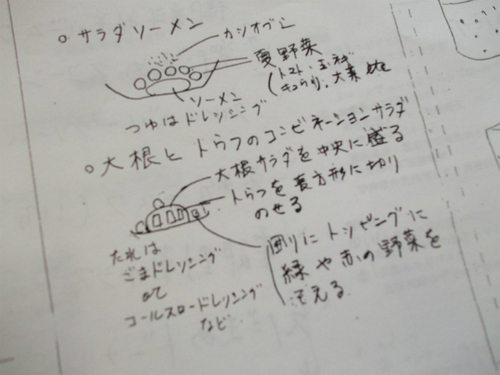 ○ サラダソーメン
カツオブシ
夏野菜
(トマト・玉ネギ
キュウリ、大葉 など
ソーメン
つゆはドレッシング
○ 大根と トウフのコンビネーションサラダ
大根サラダを中央に盛る
トウフを長方形に切り
のせる
囲りにトッピングに
緑や赤の野菜を
そえる
たれは
ごまドレッシング
コールスロードレッシング
など